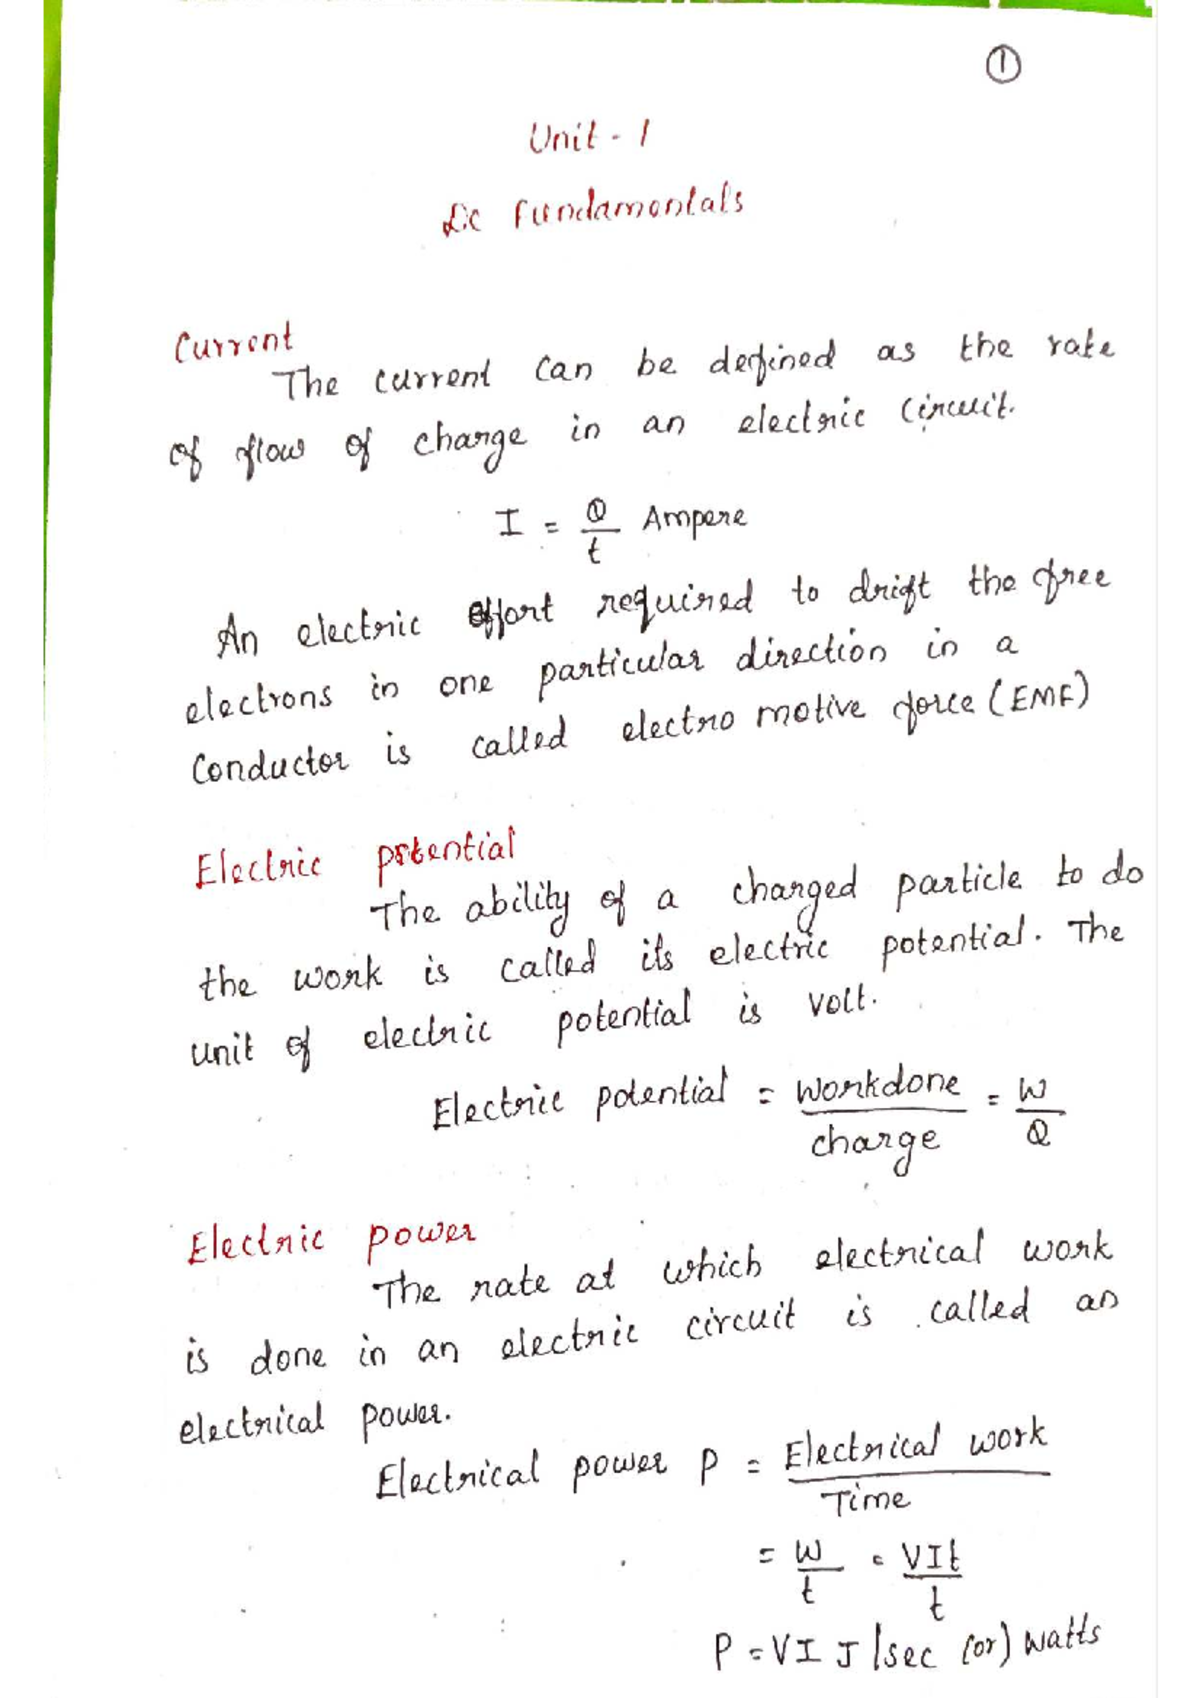 1
Unit - 1
DC Fundamentals
Current
The current can be defined as the rate
of flow of charge in an electric circuit.
I = Q/t Ampere
An electric effort required to drift the free
electrons in one particular direction in a
conductor is called electro motive force (EMF)
Electric potential
The ability of a charged particle to do
the work is called its electric potential. The
unit of electric potential is volt.
Electric potential = workdone/charge = W/Q
Electric power
The rate at which electrical work
is done in an electric circuit is called as
electrical power.
Electrical power P = Electrical work/Time
= W/t = VIt/t
P = VI J/sec (or) watts